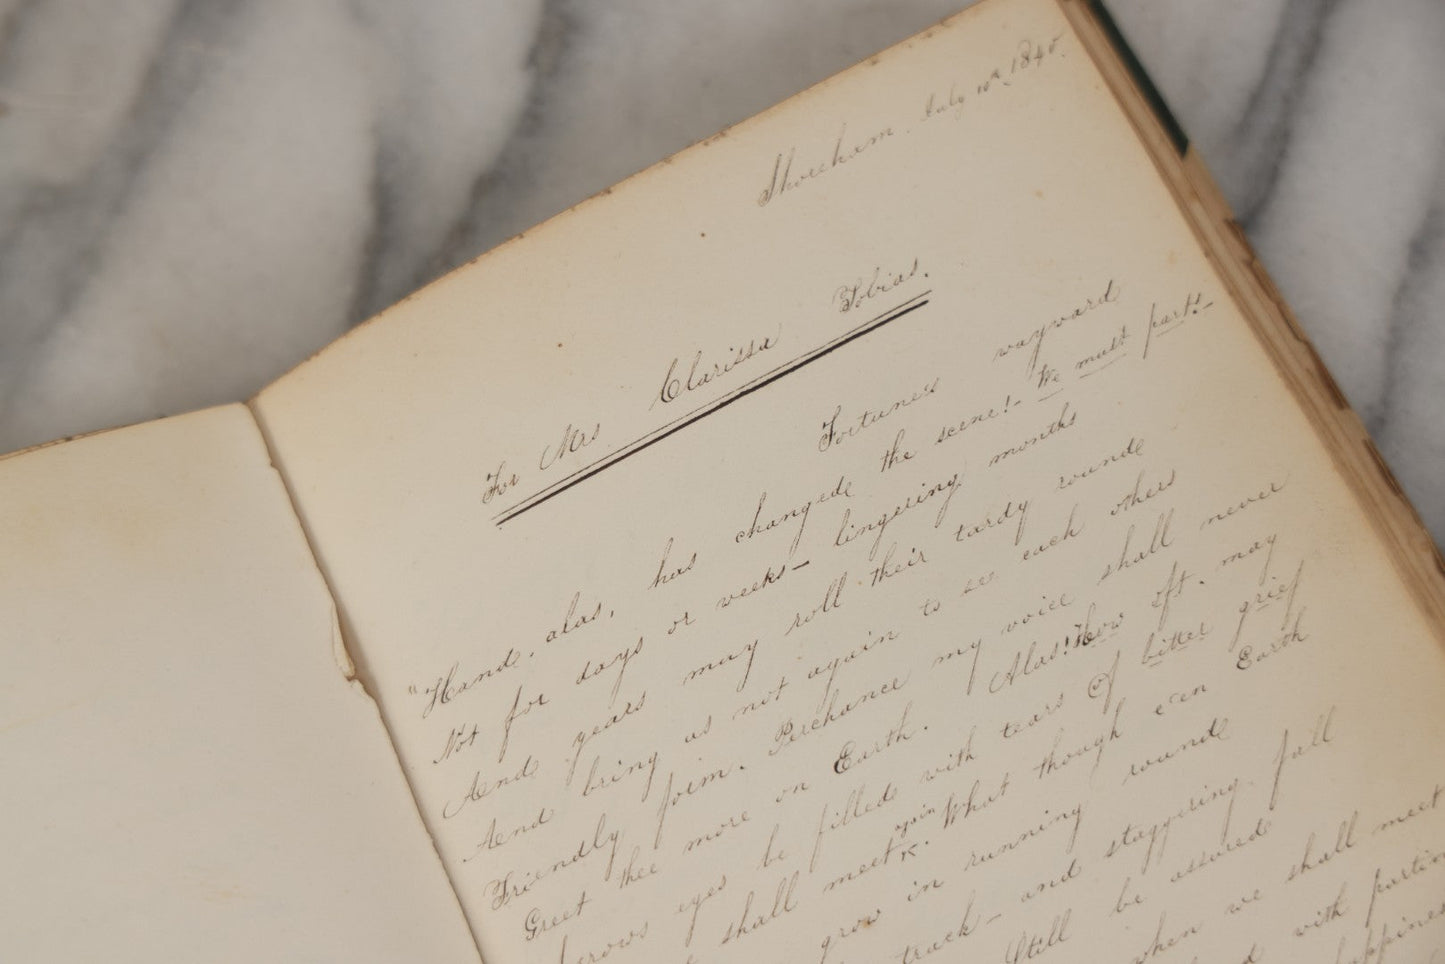 Shoreham. July 10th, 1845.
For Mrs Clarissa Tobias.
Fortunes wayward
"Hand, alas, has changed the scene!- We must part!-
Not for days or weeks- lingering months
And years may roll their tardy round
And bring us not again to see each others
Friendly foim. Perchance my voice shall never
Greet thee more on Earth. Alas! How oft, may
eyes be filled with tears of bitter grief
shall meet again. What though e'en Earth
grow in running round
track- and staggering, fall
Still be assured
when we shall meet
with